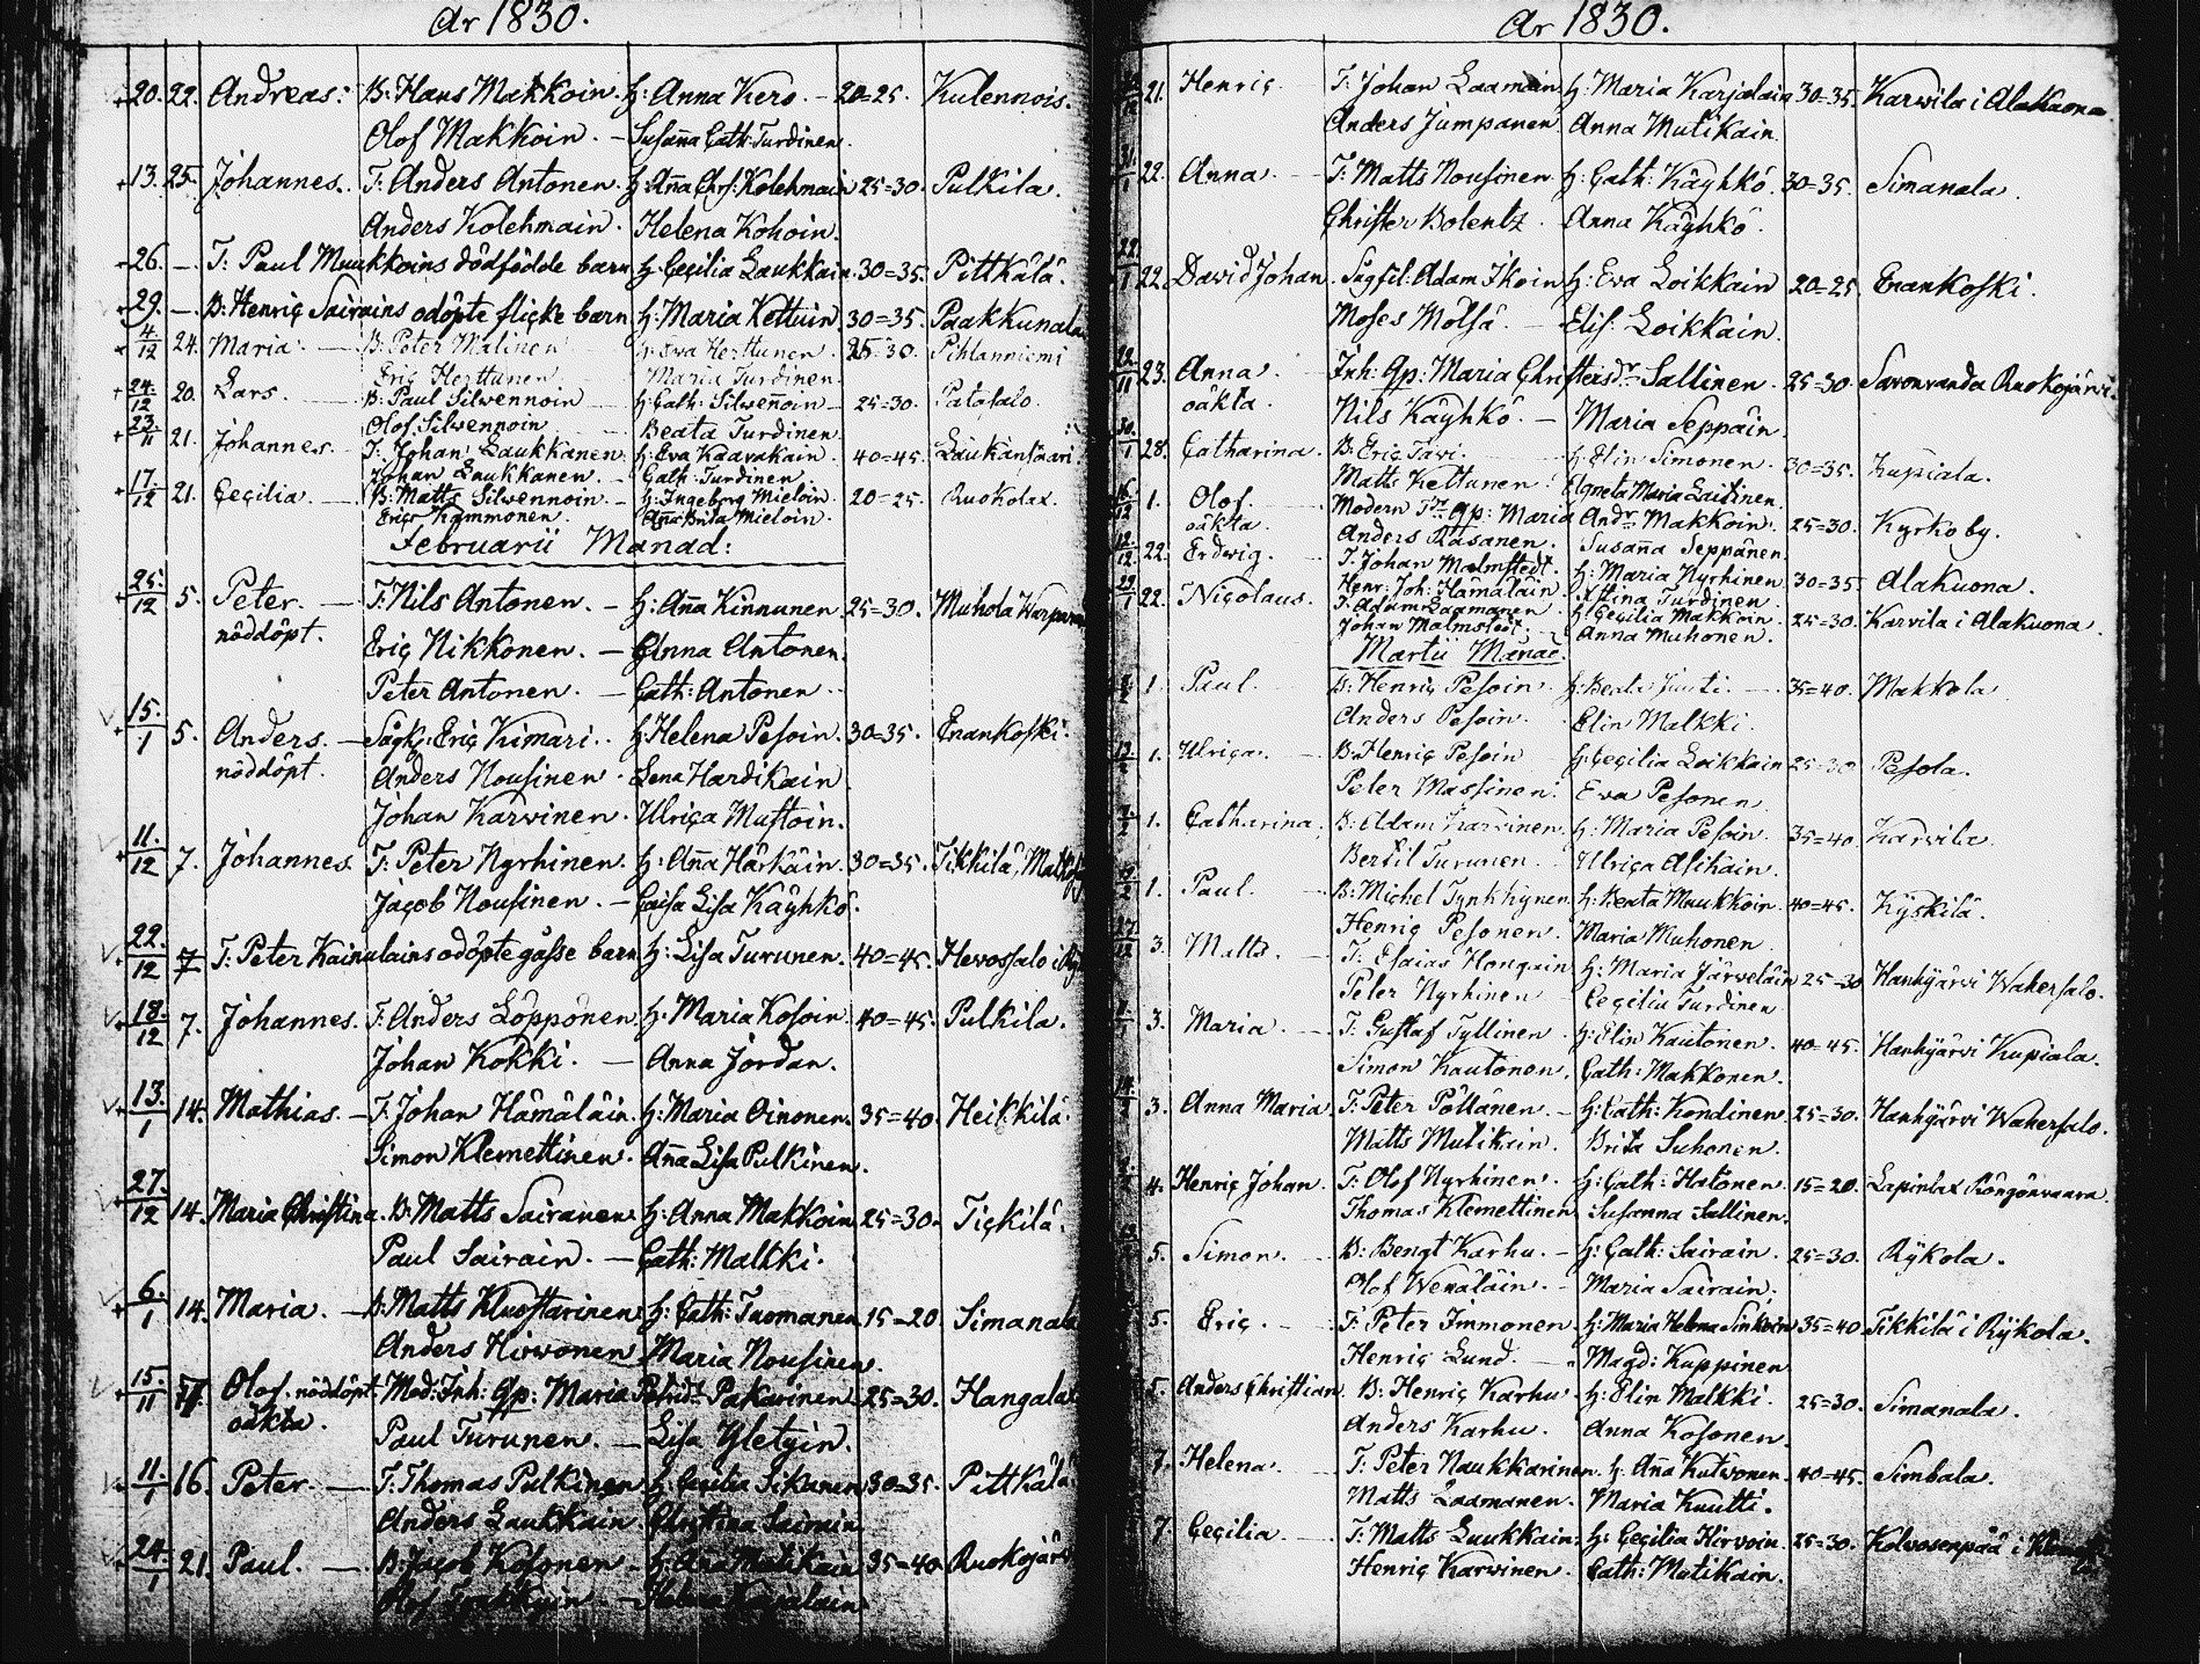 År 1830.
20. 22. Andreas: B: Hans Makkoin. H: Anna Kero. 20=25. Kulennois.
Olof Makkoin. Susaña Cath: Turdinen.
13. 25. Johannes. T: Anders Antonen. H: Aña Chrs: Kolehmain 25=30. Pulkila.
Anders Kolehmain. Helena Kohoin.
26. T: Paul Muukkoins dödfödde barn H: Cecilia Laukkain. 30=35. Pittkälä.
29. B: Henric Sairains odöpte flicke barn H: Maria Kettuin 30=35. Paakkunala
4/12 24. Maria. B: Peter Malinen H: Eva Herttunen. 25=30. Pihlanniemi
Eric Herttunen Maria Turdinen.
24./12 20. Lars. B: Paul Silwennoin H: Cath: Silweñoin 25=30. Patasalo.
Olof Silwennoin Beata Turdinen.
23./11 21. Johannes. T: Johan Laukkanen H: Eva Kaavakain. 40=45. Laukansaari.
Johan Laukkanen. Cath: Turdinen
17./12 21. Cecilia. B: Matts Silwennoin. H: Ingeborg Mieloin. 20=25. Ruokolax.
Eric Kammonen. Aña Brita Mieloin.
Februarii Månad:
25./12 5. Peter. T: Nils Antonen. H: Aña Kinnunen 25=30. Muhola
nöddöpt. Eric Nikkonen. Anna Antonen.
Peter Antonen. Cath: Antonen.
15./1 5. Anders. Sågk: Eric Kimari. H: Helena Pesoin. 30=35. Enankoski.
nöddöpt. Anders Nousinen. Lena Hardikain
Johan Karvinen. Ulrica Mustoin.
11./12 7. Johannes. T: Peter Nyrhinen. H: Aña Härkäin. 30=35. Tikkilä,
Jacob Nousinen. Caisa Lisa Käyhkö.
22./12 7 T: Peter Kainulains odöpte gåsse barn H: Lisa Turunen. 40=45. Hevossalo i
18./12 7. Johannes. T: Anders Löppönen. H: Maria Kosoin. 40=45. Pulkila.
Johan Kokki. Anna Jordan.
13./1 14. Mathias. T: Johan Hämäläin. H: Maria Oinonen. 35=40. Heikkilä.
Simon Klemettinen. Aña Lisa Pulkinen.
27./12 14. Maria Christina. B: Matts Sairanen H: Anna Makkoin 25=30. Tickilä.
Paul Sairain. Cath: Maltki.
6./1 14. Maria. B: Matts Kluostarinen H: Cath: Tuomanen 15=20. Simanala
Anders Hirwonen Maria Nousinen.
15./11 Olof. nöddöpt. Mod: Inh: Qp: Maria Petrid:r Pakarinen 25=30. Hangala
oäkta. Paul Turunen. Lisa Yletyin.
11./1 16. Peter. T: Thomas Pulkinen H: Cecilia Sikanen 30=35. Pittkälä
Anders Laukkain Christina Sairain
24./1 21. Paul. B: Jacob Kosonen H: Aña Mutikain 35=40. Ruokojärv
År 1830.
21. Henric. T: Johan Laamain. H: Maria Karjalain 30=35. Karvila i Alakuona
Anders Jumpanen. Anna Mutikain.
31./1 22. Anna. T: Matts Nousinen. H: Cath: Käyhkö. 30=35. Simanala.
Christer Bolentz. Anna Käyhkö.
22./1 22. David Johan. Sågfil: Adam Ikoin H: Eva Loikkain 20=25 Enankoski.
Moses Mölsä. Elis: Loikkain.
22./11 23. Anna. Inh: Qp: Maria Christersdr Sallinen. 25=30. Savonranda Ruokojärvi.
oäkta. Nils Käyhkö. Maria Seppäin.
30./1 28. Catharina. B: Eric Tavi. H: Elin Simonen. 30=35. Kupiala.
Matts Kettunen. Agneta Maria Laitinen.
1. Olof. Modern Qp: Maria Andr Makkoin. 25=30. Kyrkoby.
oäkta. Anders Räsänen. Susaña Seppänen.
12./12 22. Erdwig. T: Johan Malmstedt. H: Maria Nyrhinen. 30=35. Alakuona.
Henr: Joh: Hämäläin. Stina Turdinen.
22./1 22. Nicolaus. T: Adam Laamanen. H: Cecilia Makkoin. 25=30. Karvila i Alakuona.
Johan Malmstedt. Anna Muhonen.
Martii Månad.
1. Paul. B: Henric Pesoin. H: Beata Juuti. 35=40. Makkola.
Anders Pesoin. Elin Malkki.
1. Ulrica. B: Henric Pesoin H: Cecilia Loikkain 25=30 Pesola.
Peter Massinen. Eva Pesonen.
1. Catharina. B: Adam Karvinen. H: Maria Pesoin. 35=40. Karvila.
Bertil Turunen. Ulrica Asikain.
1. Paul. B: Michel Tynkkynen H: Beata Muukkoin. 40=45. Kyskilä.
Henric Pesonen. Maria Muhonen.
3. Matts. T: Esaias Hongain H: Maria Järveläin 25=30 Hanhijärvi Wakersalo.
Peter Nyrhinen Cecilia Turdinen
3. Maria. T: Gustaf Tyllinen. H: Elin Kautonen. 40=45. Hanhijärvi Kupiala.
Simon Kautonen. Cath: Makkonen.
3. Anna Maria. T: Peter Pöllänen. H: Cath: Kondinen. 25=30. Hanhijärvi Wakersalo.
Matts Mutikain. Brita Suhonen.
4. Henric Johan. T: Olof Nyrhinen. H: Cath: Hatonen. 15=20. Lapinlax Röngönvaara.
Thomas Klemettinen. Susanna Sallinen.
5. Simon. B: Bengt Karhu. H: Cath: Sairain. 25=30. Rykola.
Olof Wenäläin. Maria Sairain.
5. Eric. T: Peter Immonen. H: Maria Helena Sinkoin 35=40 Tikkilä i Rykola.
Henric Lund. Magd: Kuppinen
5. Anders Christian. B: Henric Karhu. H: Elin Malkki. 25=30. Simanala.
Anders Karhu. Anna Kosonen.
7. Helena. T: Peter Naukkarinen. H: Aña Kutvonen. 40=45. Simbala.
Matts Laamanen. Maria Kuutti.
7. Cecilia. T: Matts Luukkain. H: Cecilia Hirvoin. 25=30. Kolvosenpää i
Henric Karvinen. Cath: Mutikain.